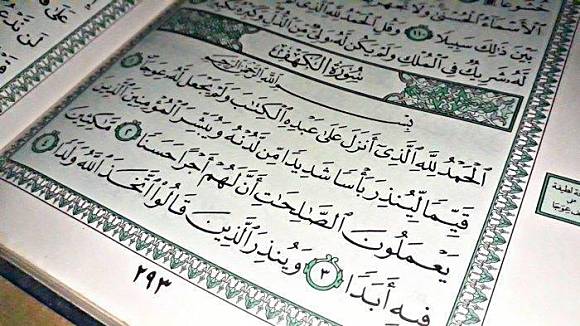 ٱلْأَسْمَآءُ ٱلْحُسْنَىٰ وَلَا
بَيْنَ ذَٰلِكَ سَبِيلًا ١١٠ وَقُلِ ٱلْحَمْدُ لِلَّهِ ٱلَّذِى لَمْ
لَّهُۥ شَرِيكٌ فِى ٱلْمُلْكِ وَلَمْ يَكُن لَّهُۥ وَلِىٌّ مِّنَ ٱلذُّلِّ وَكَبِّرْهُ تَكْبِيرًا
سُورَةُ الكَهْفِ
بِسْمِ ٱللَّهِ ٱلرَّحْمَٰنِ ٱلرَّحِيمِ
ٱلْحَمْدُ لِلَّهِ ٱلَّذِىٓ أَنزَلَ عَلَىٰ عَبْدِهِ ٱلْكِتَٰبَ وَلَمْ يَجْعَل لَّهُۥ عِوَجَا ١
قَيِّمًا لِّيُنذِرَ بَأْسًا شَدِيدًا مِّن لَّدُنْهُ وَيُبَشِّرَ ٱلْمُؤْمِنِينَ ٱلَّذِينَ
يَعْمَلُونَ ٱلصَّٰلِحَٰتِ أَنَّ لَهُمْ أَجْرًا حَسَنًا ٢ مَّٰكِثِينَ
فِيهِ أَبَدًا ٣ وَيُنذِرَ ٱلَّذِينَ قَالُوا۟ ٱتَّخَذَ ٱللَّهُ وَلَدًا ٤
٢٩٣